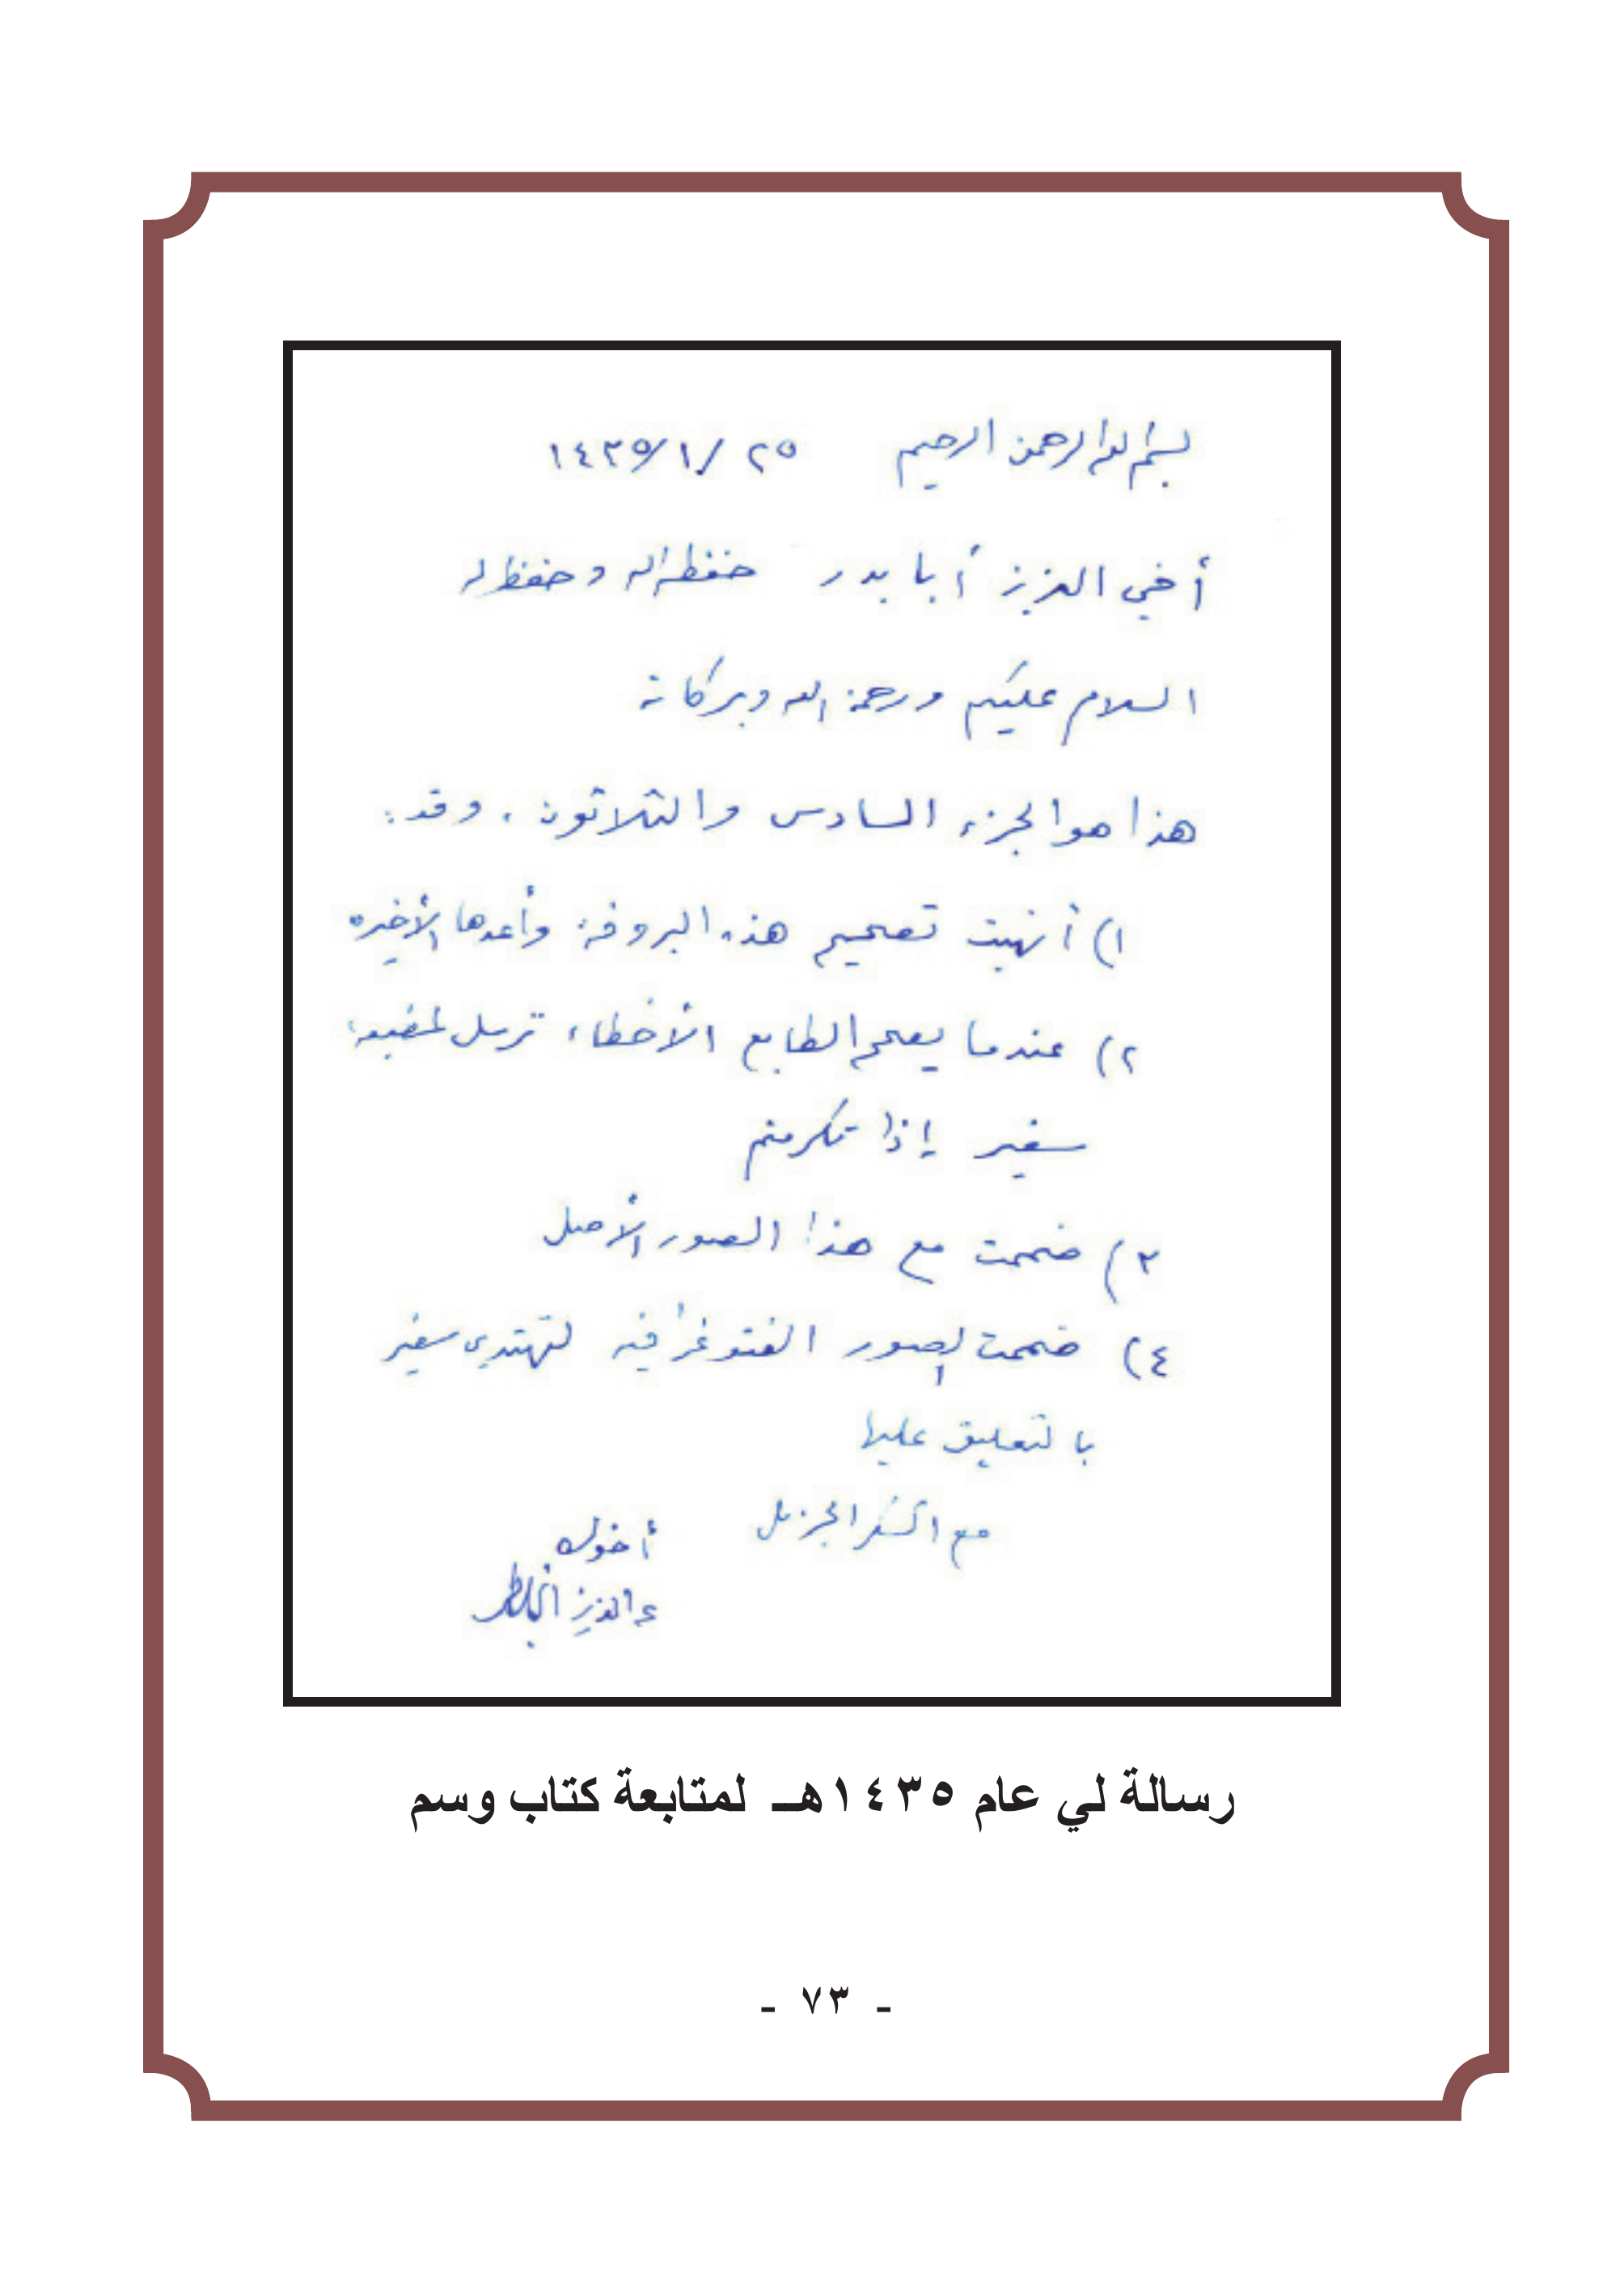 بسم الله الرحمن الرحيم ٢٥/١/١٤٣٥
أخي العزيز أبا بدر حفظه الله وحفظ له
السلام عليكم ورحمة الله وبركاته
هذا هو الجزء السادس والثلاثون. وقد:
١) أنهيت تصحيح هذه البروفة وأعدها الأخيره
٢) عندما يصحح الطابع الأخطاء ترسل لمطبعة
سفير إذا تكرمتم
٣) ضممت مع هذا الصور الأصل
٤) ضممت الصور الفتوغرافيه لتهتدي سفير
بالتعليق عليها
مع الشكر الجزيل
أخوك
ع العزيز الخويطر
رسالة لي عام ١٤٣٥هـ لمتابعة كتاب وسم
- ٧٣ -